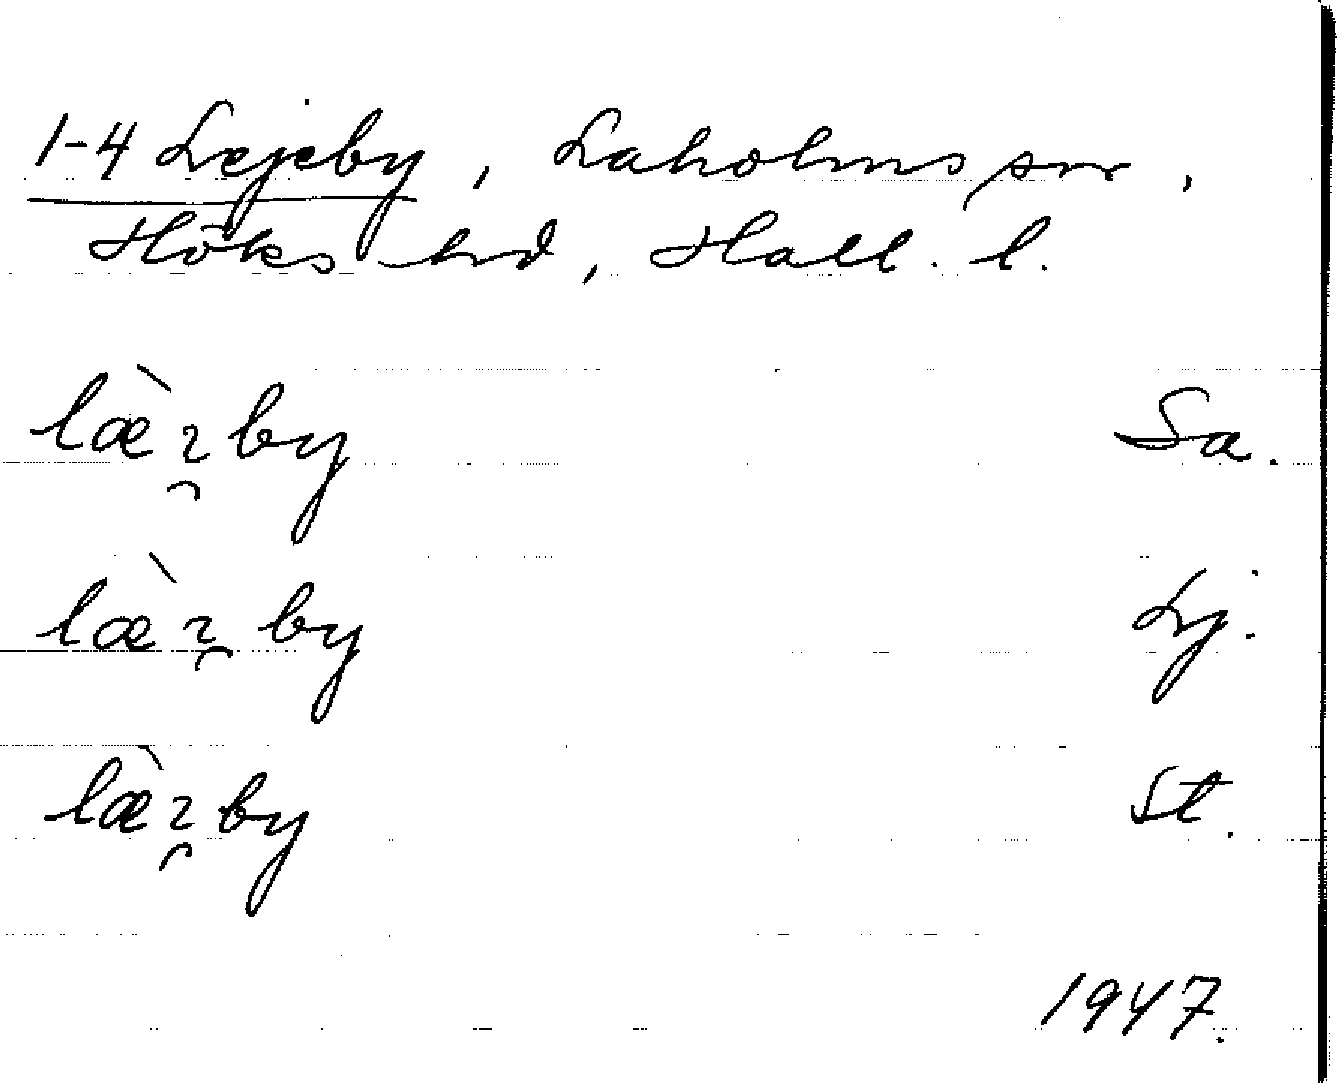 1-4 Lejeby, Laholms snr,
Höks hd, Hall. l.
læ̀ɿ̯by Sa.
læ̀ɿ̯by Lj.
læ̀ɿ̯by St.
1947.